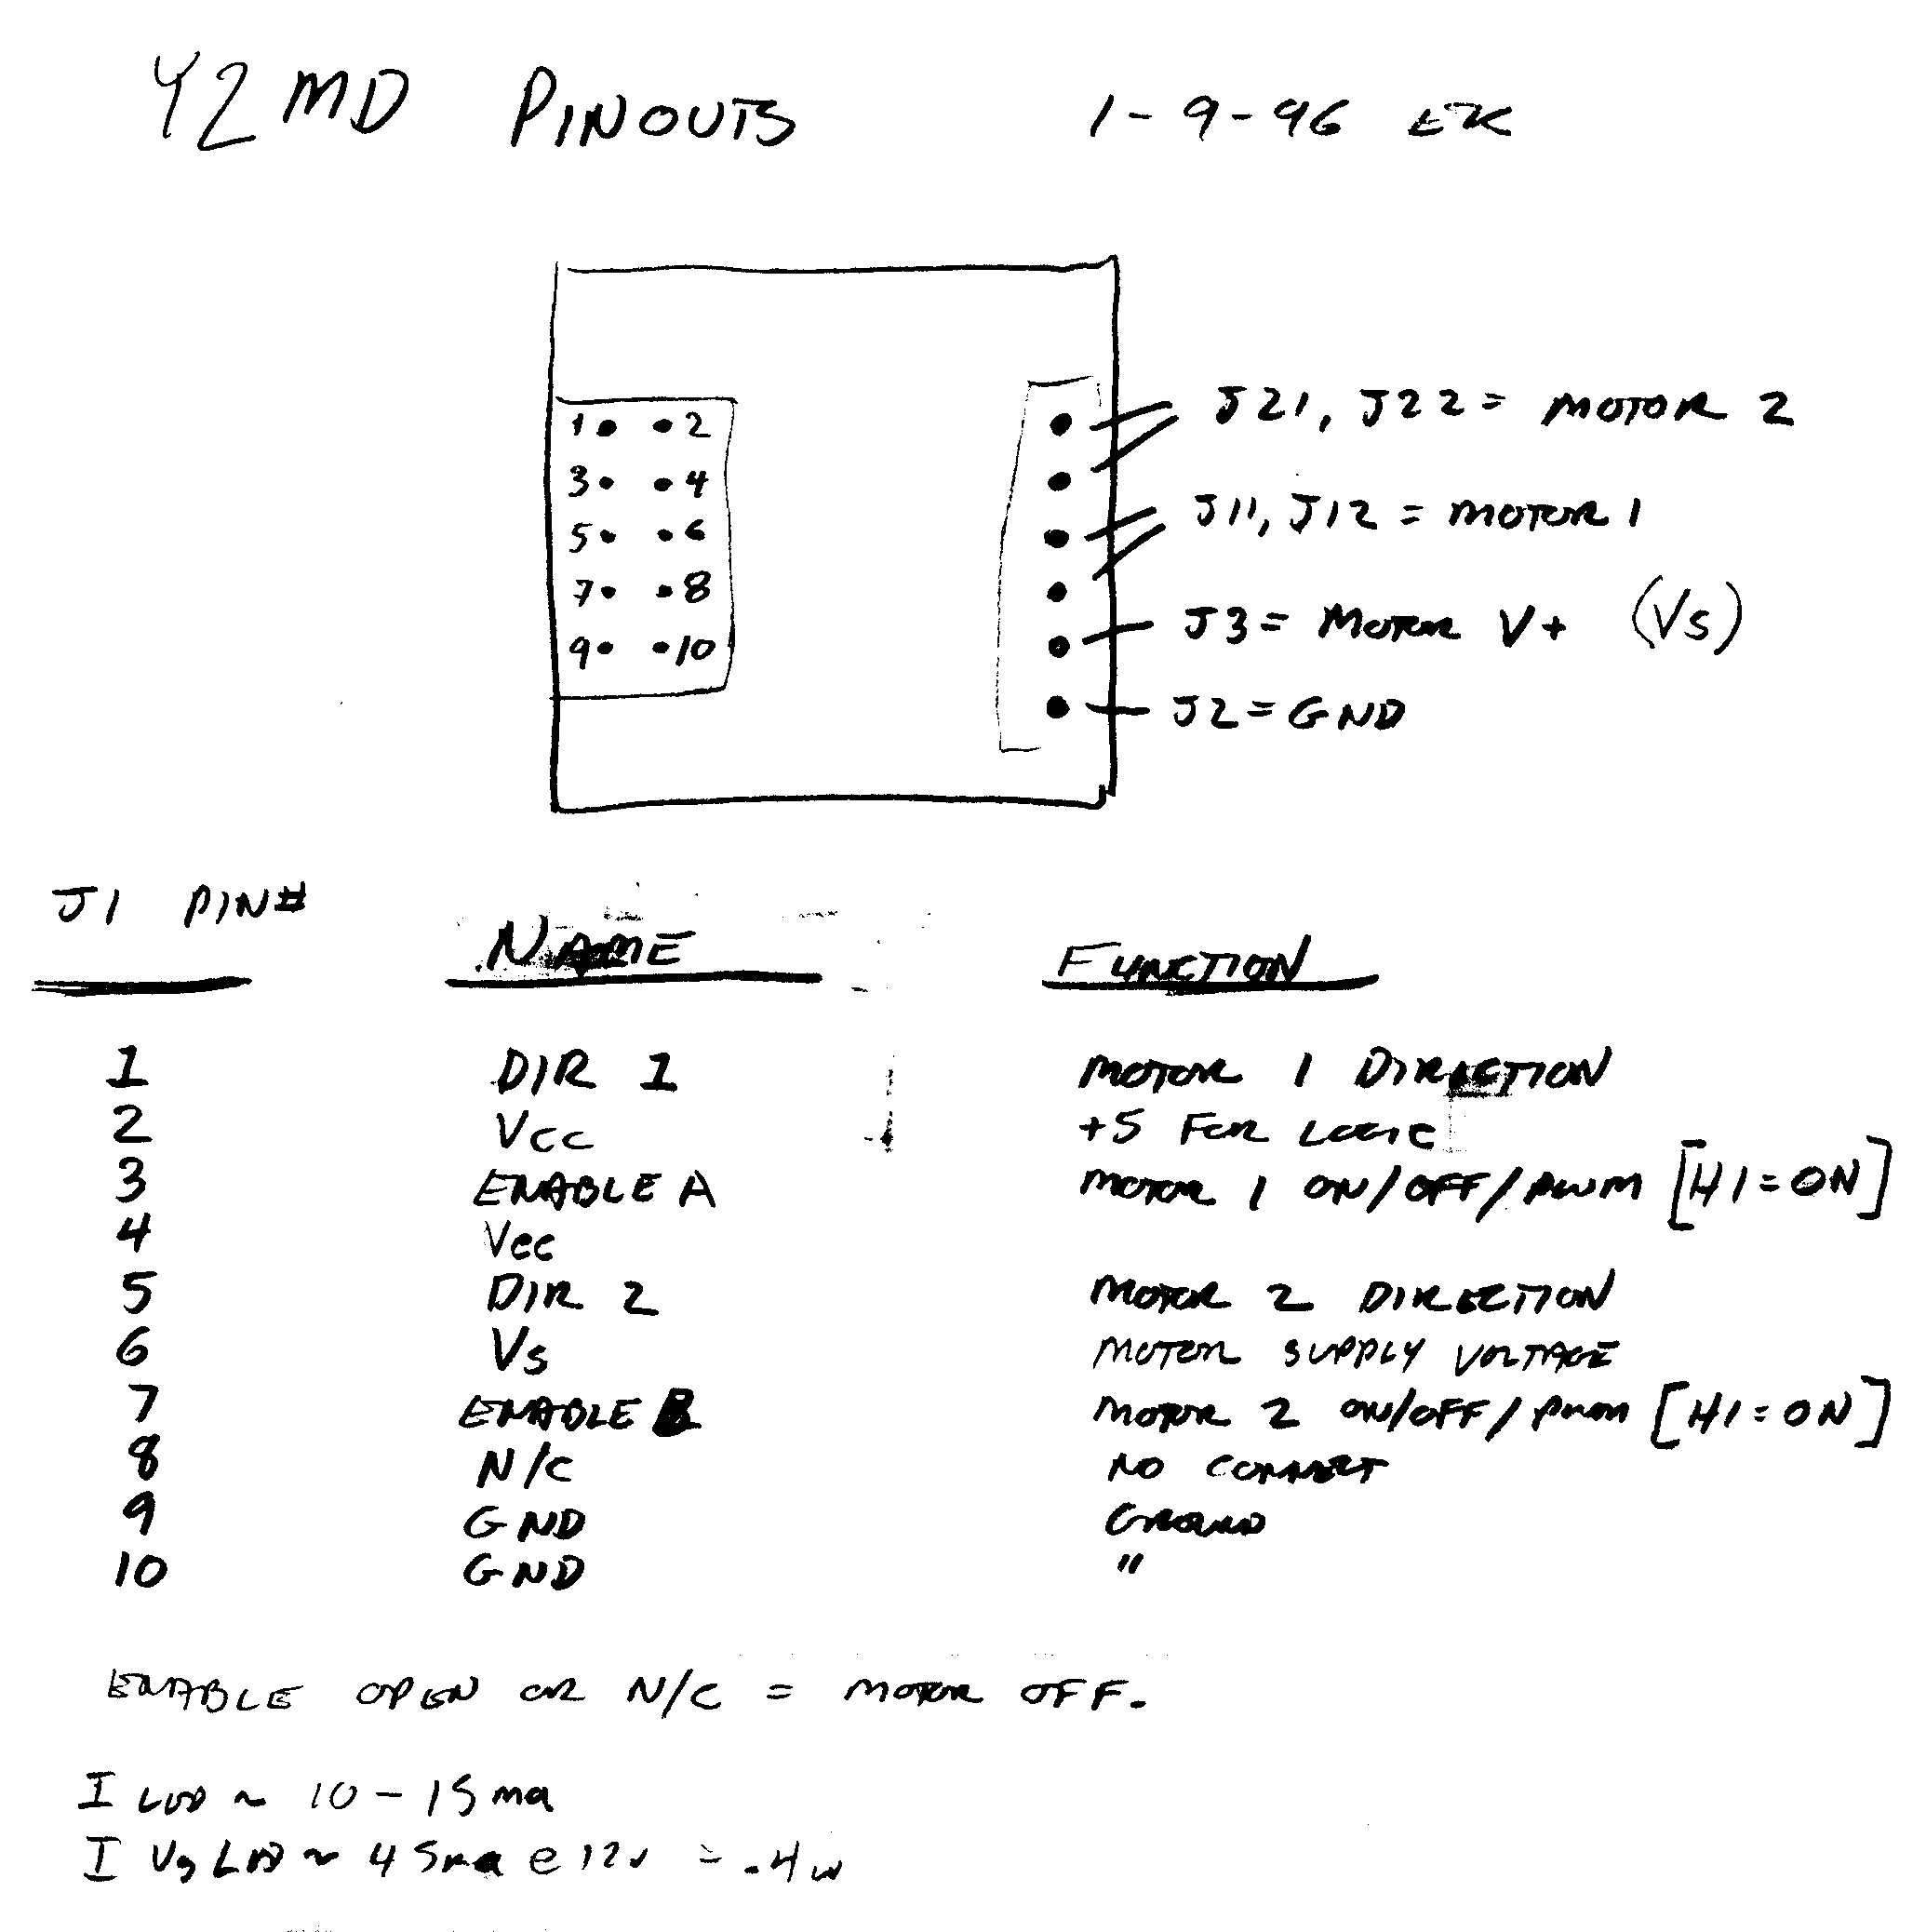 42 MD PINOUTS 1-9-96
1 2 J21, J22 = MOTOR 2
3 4
5 6 J11, J12 = MOTOR 1
7 8 J3 = MOTOR V+ (Vs)
9 10
J2 = GND
J1 PIN# NAME FUNCTION
1 DIR 1 MOTOR 1 DIRECTION
2 Vcc +5 FOR LOGIC
3 ENABLE A MOTOR 1 ON/OFF/PWM [HI=ON]
4 Vcc
5 DIR 2 MOTOR 2 DIRECTION
6 Vs MOTOR SUPPLY VOLTAGE
7 ENABLE B MOTOR 2 ON/OFF/PWM [HI=ON]
8 N/C NO CONNECT
9 GND GROUND
10 GND "
ENABLE OPEN OR N/C = MOTOR OFF.
I ~ 10-15ma
I Vs ~ 45ma @ 12v = .4w